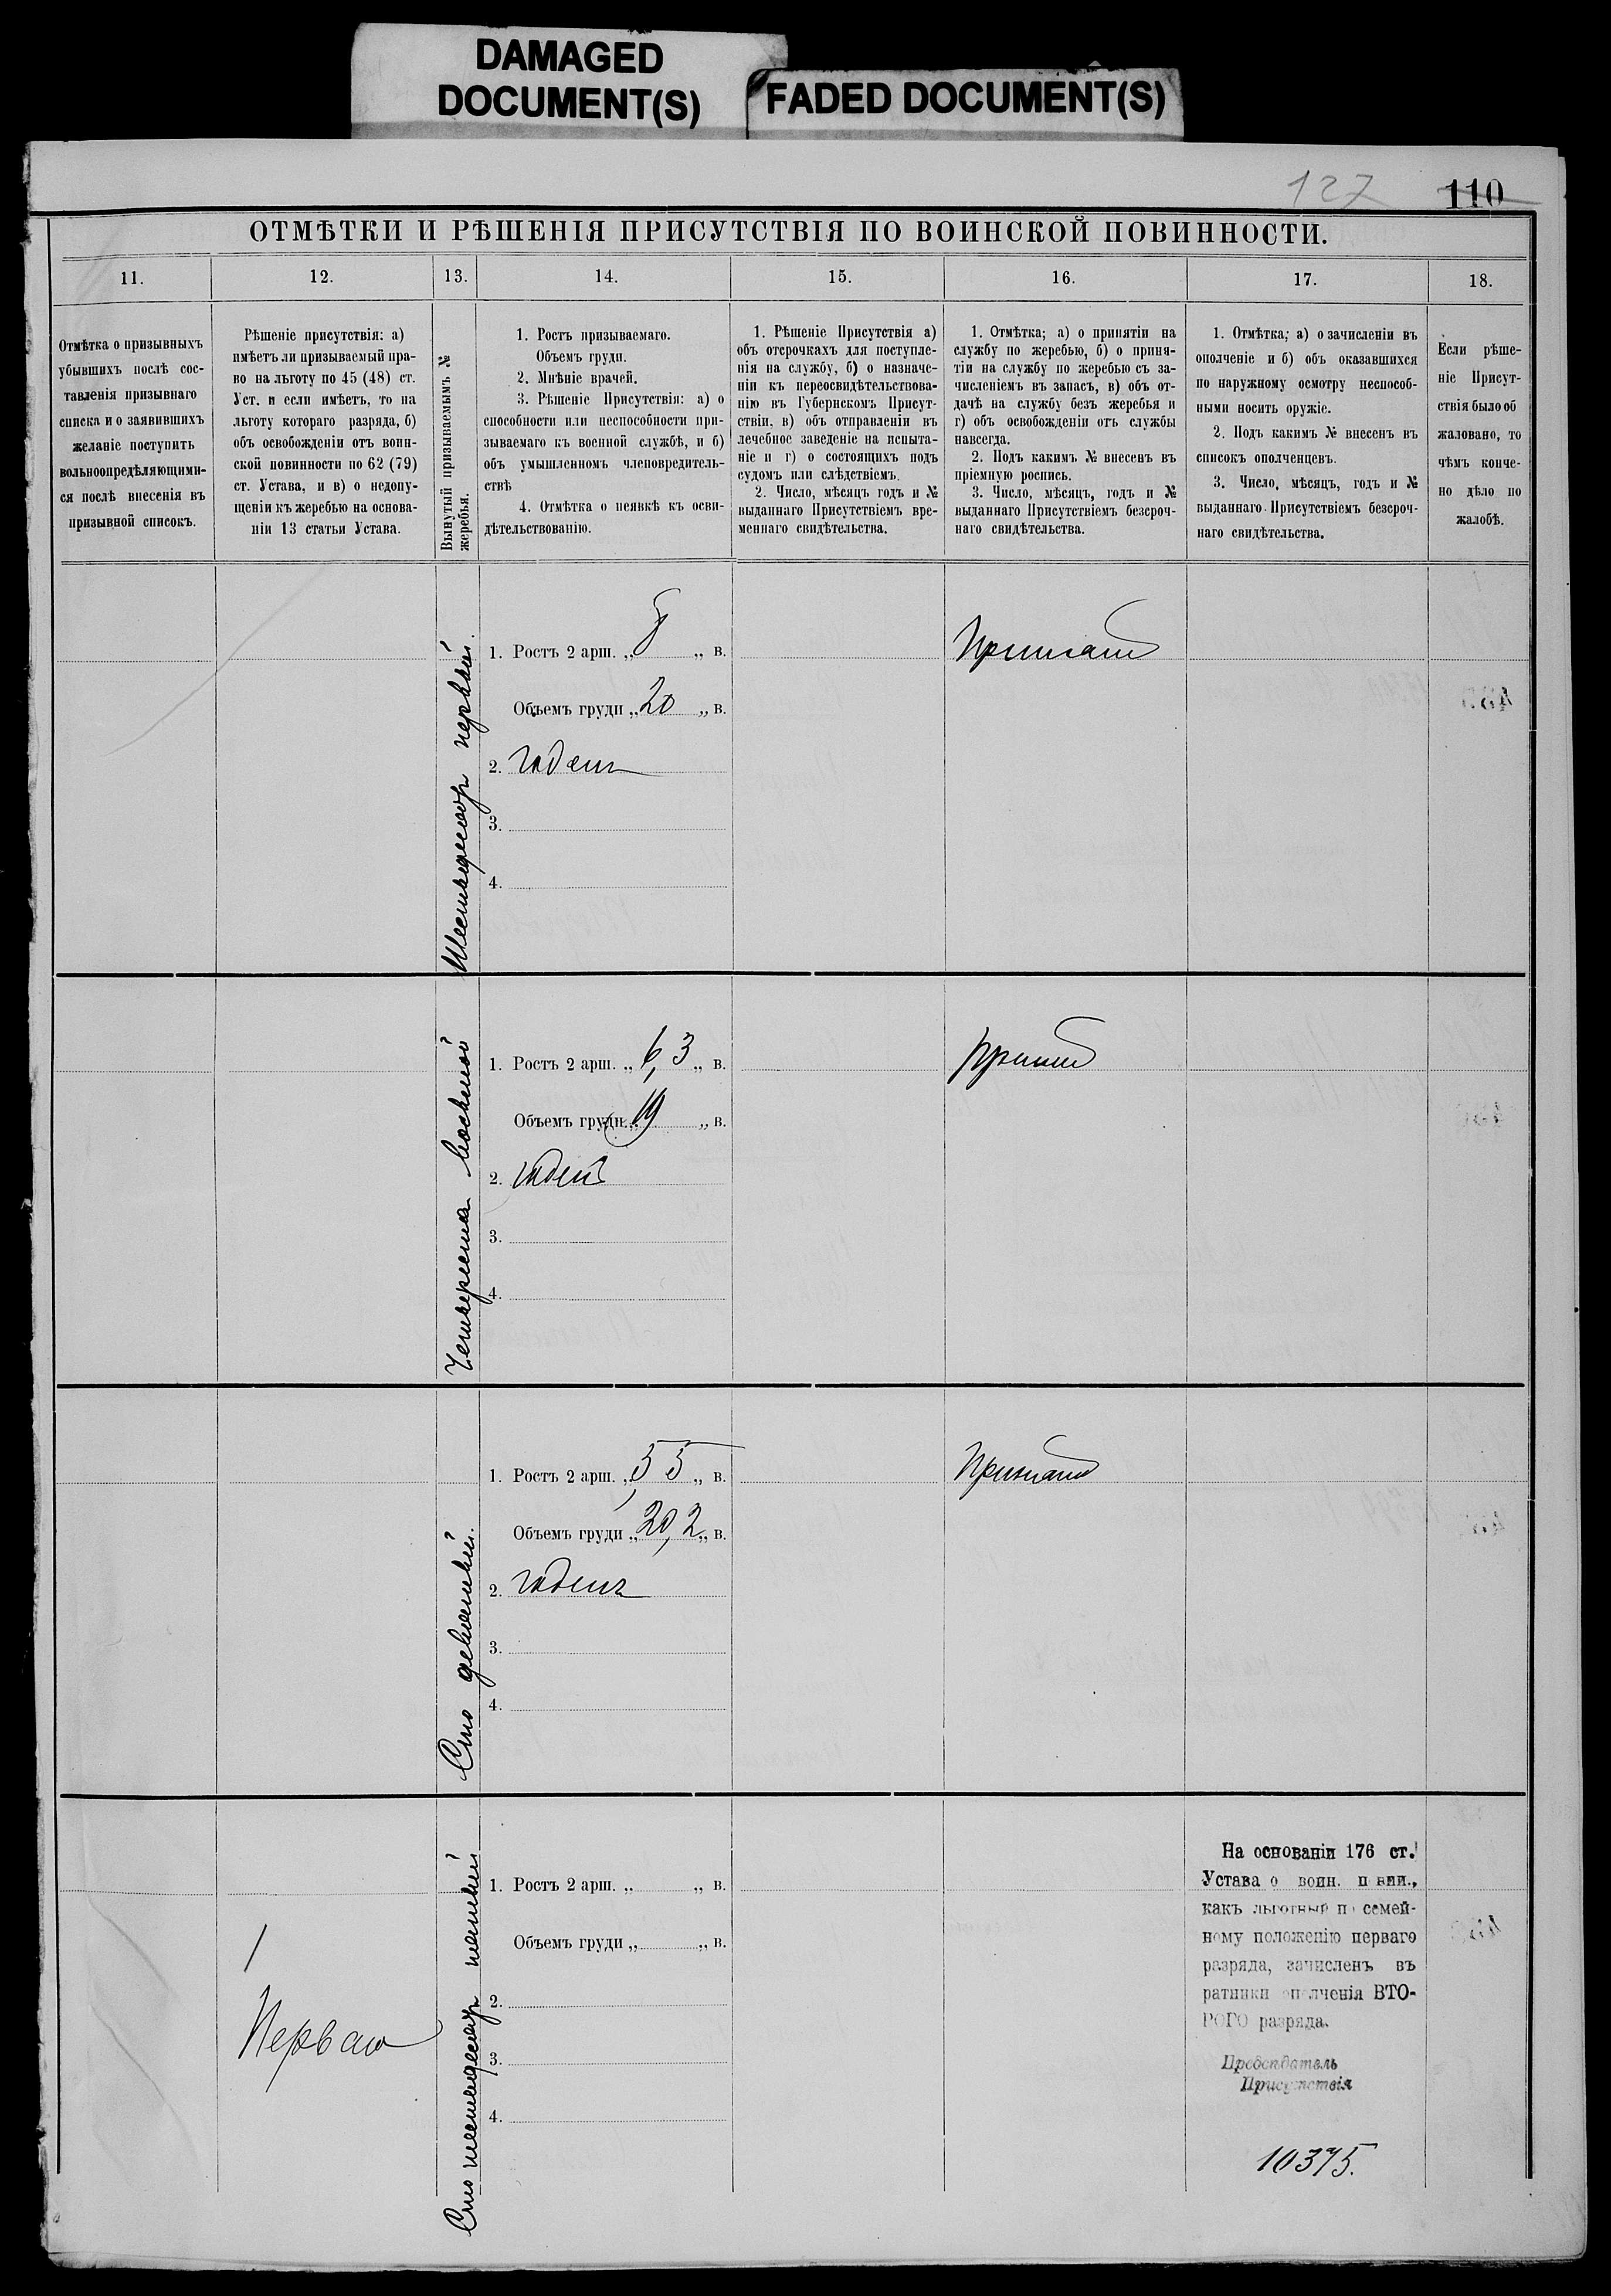 DAMAGED
DOCUMENT(S)
FADED DOCUMENT(S)
127
110
ОТМѢТКИ И РѢШЕНІЯ ПРИСУТСТВІЯ ПО ВОИНСКОЙ ПОВИННОСТИ.
11.
12.
13.
14.
15.
16.
17.
18.
Отмѣтка о призывныхъ
убывшихъ послѣ сос-
тавленія призывнаго
списка и о заявившихъ
желаніе поступить
вольноопредѣляющими-
ся послѣ внесенія въ
призывной списокъ.
Рѣшеніе присутствія: а)
имѣетъ ли призываемый пра-
во на льготу по 45 (48) ст.
Уст. и если имѣетъ, то на
льготу котораго разряда, б)
объ освобожденіи отъ воин-
ской повинности по 62 (79)
ст. Устава, и в) о недопу-
щеніи къ жеребью на основа-
ніи 13 статьи Устава.
Вынутый призываемымъ №
жеребья.
1. Ростъ призываемаго.
Объемъ груди.
2. Мнѣніе врачей.
3. Рѣшеніе Присутствія: а) о
способности или неспособности при-
зываемаго къ военной службѣ, и б)
объ умышленномъ членовредитель-
ствѣ
4. Отмѣтка о неявкѣ къ осви-
дѣтельствованію.
1. Рѣшеніе Присутствія а)
объ отсрочкахъ для поступле-
нія на службу, б) о назначе-
ніи къ переосвидѣтельствова-
нію въ Губернскомъ Присут-
ствіи, в) объ отправленіи въ
лечебное заведеніе на испыта-
ніе и г) о состоящихъ подъ
судомъ или слѣдствіемъ.
2. Число, мѣсяцъ годъ и №
выданнаго Присутствіемъ вре-
меннаго свидѣтельства.
1. Отмѣтка; а) о принятіи на
службу по жеребью, б) о приня-
тіи на службу по жеребью съ за-
численіемъ въ запасъ, в) объ от-
дачѣ на службу безъ жеребья и
г) объ освобожденіи отъ службы
навсегда.
2. Подъ какимъ № внесенъ въ
пріемную роспись.
3. Число, мѣсяцъ, годъ и №
выданнаго Присутствіемъ безсроч-
наго свидѣтельства.
1. Отмѣтка; а) о зачисленіи въ
ополченіе и б) объ оказавшихся
по наружному осмотру неспособ-
ными носить оружіе.
2. Подъ какимъ № внесенъ въ
списокъ ополченцевъ.
3. Число, мѣсяцъ, годъ и №
выданнаго Присутствіемъ безсроч-
наго свидѣтельства.
Если рѣше-
ніе Присут-
ствія было об
жаловано, то
чѣмъ конче-
но дѣло по
жалобѣ.
Шестьдесятъ первый.
1. Ростъ 2 арш. „ 8 „ в.
Объемъ груди „ 20 „ в.
2. годенъ
3.
4.
Принятъ
Четыреста восьмой
1. Ростъ 2 арш. „ 6,3 „ в.
Объемъ груди „ 19 „ в.
2. годенъ
3.
4.
Принятъ
Сто девятый.
1. Ростъ 2 арш. „ 5,5 „ в.
Объемъ груди „ 20,2 „ в.
2. годенъ
3.
4.
Принятъ
1
Первый
Сто шестьдесятъ пятый
1. Ростъ 2 арш. „ „ в.
Объемъ груди „ „ в.
2.
3.
4.
На основаніи 176 ст.
Устава о воин. повин.,
какъ льготный по семей-
ному положенію перваго
разряда, зачисленъ въ
ратники ополченія ВТО-
РОГО разряда.
Предсѣдатель
Присутствія
10375.